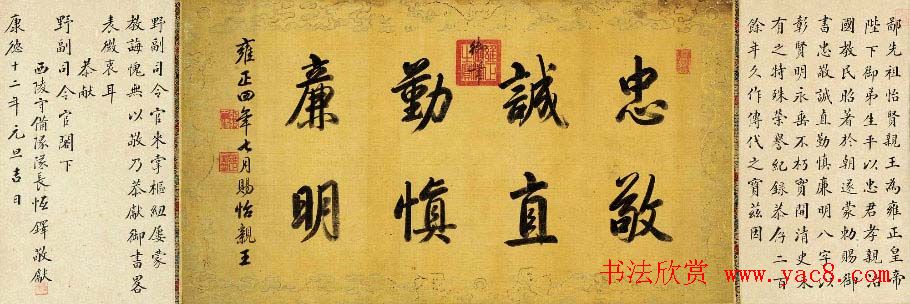 鄙先祖怡賢親王為雍正皇帝
陛下御弟生平以忠君孝親治
國教民昭著於朝遂蒙勅賜御
書忠敬誠直勤慎廉明八字以
彰賢明永垂不朽實間清史未
有之特殊榮譽紀錄恭存二百
餘年久作傳代之寶茲因
忠敬
誠直
勤慎
廉明
雍正四年七月賜怡親王
野副司令官來掌樞紐屢蒙
教誨愧無以敬乃恭獻御書畧
表微衷耳
恭獻
野副司令官閣下
西陵守備隊隊長恆鐸敬獻
康德十二年元旦吉日
书法欣赏 www.yac8.com